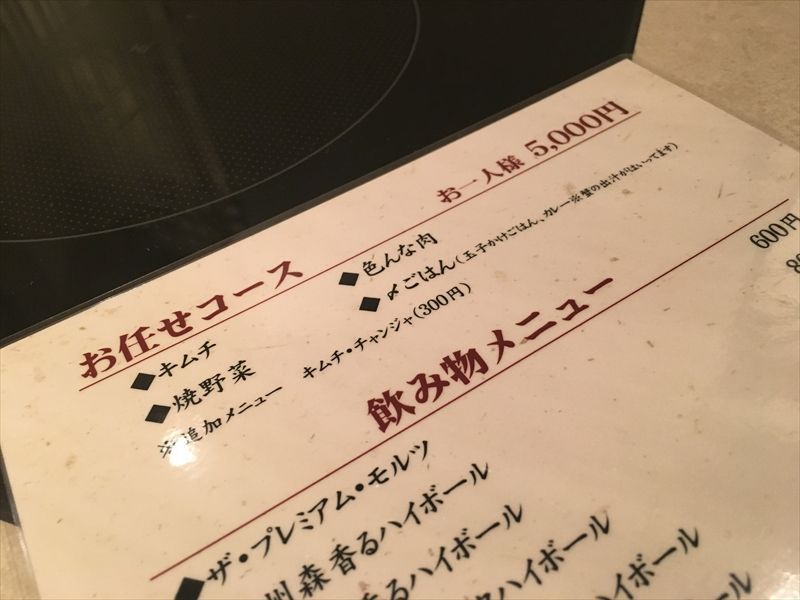 お任せコース お一人様 5,000円
◆キムチ ◆色んな肉
◆焼野菜 ◆〆ごはん(玉子かけごはん、カレー※蟹の出汁がはいってます)
※追加メニュー キムチ・チャンジャ(300円)
飲み物メニュー
◆ザ・プレミアム・モルツ 600円
州森香るハイボール
香るハイボール
ハイボール
ハイボール